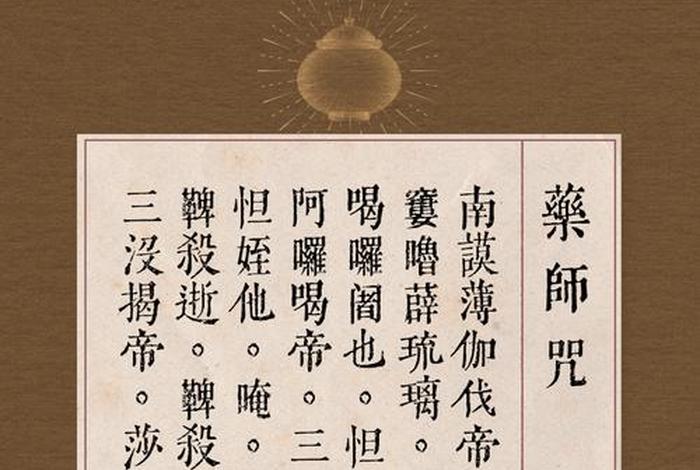 藥師咒
南謨薄伽伐帝
窶嚕薜琉璃。
喝囉闍也。怛
阿囉喝帝。三
怛姪他。唵。
鞞殺逝。鞞殺
三沒揭帝。莎